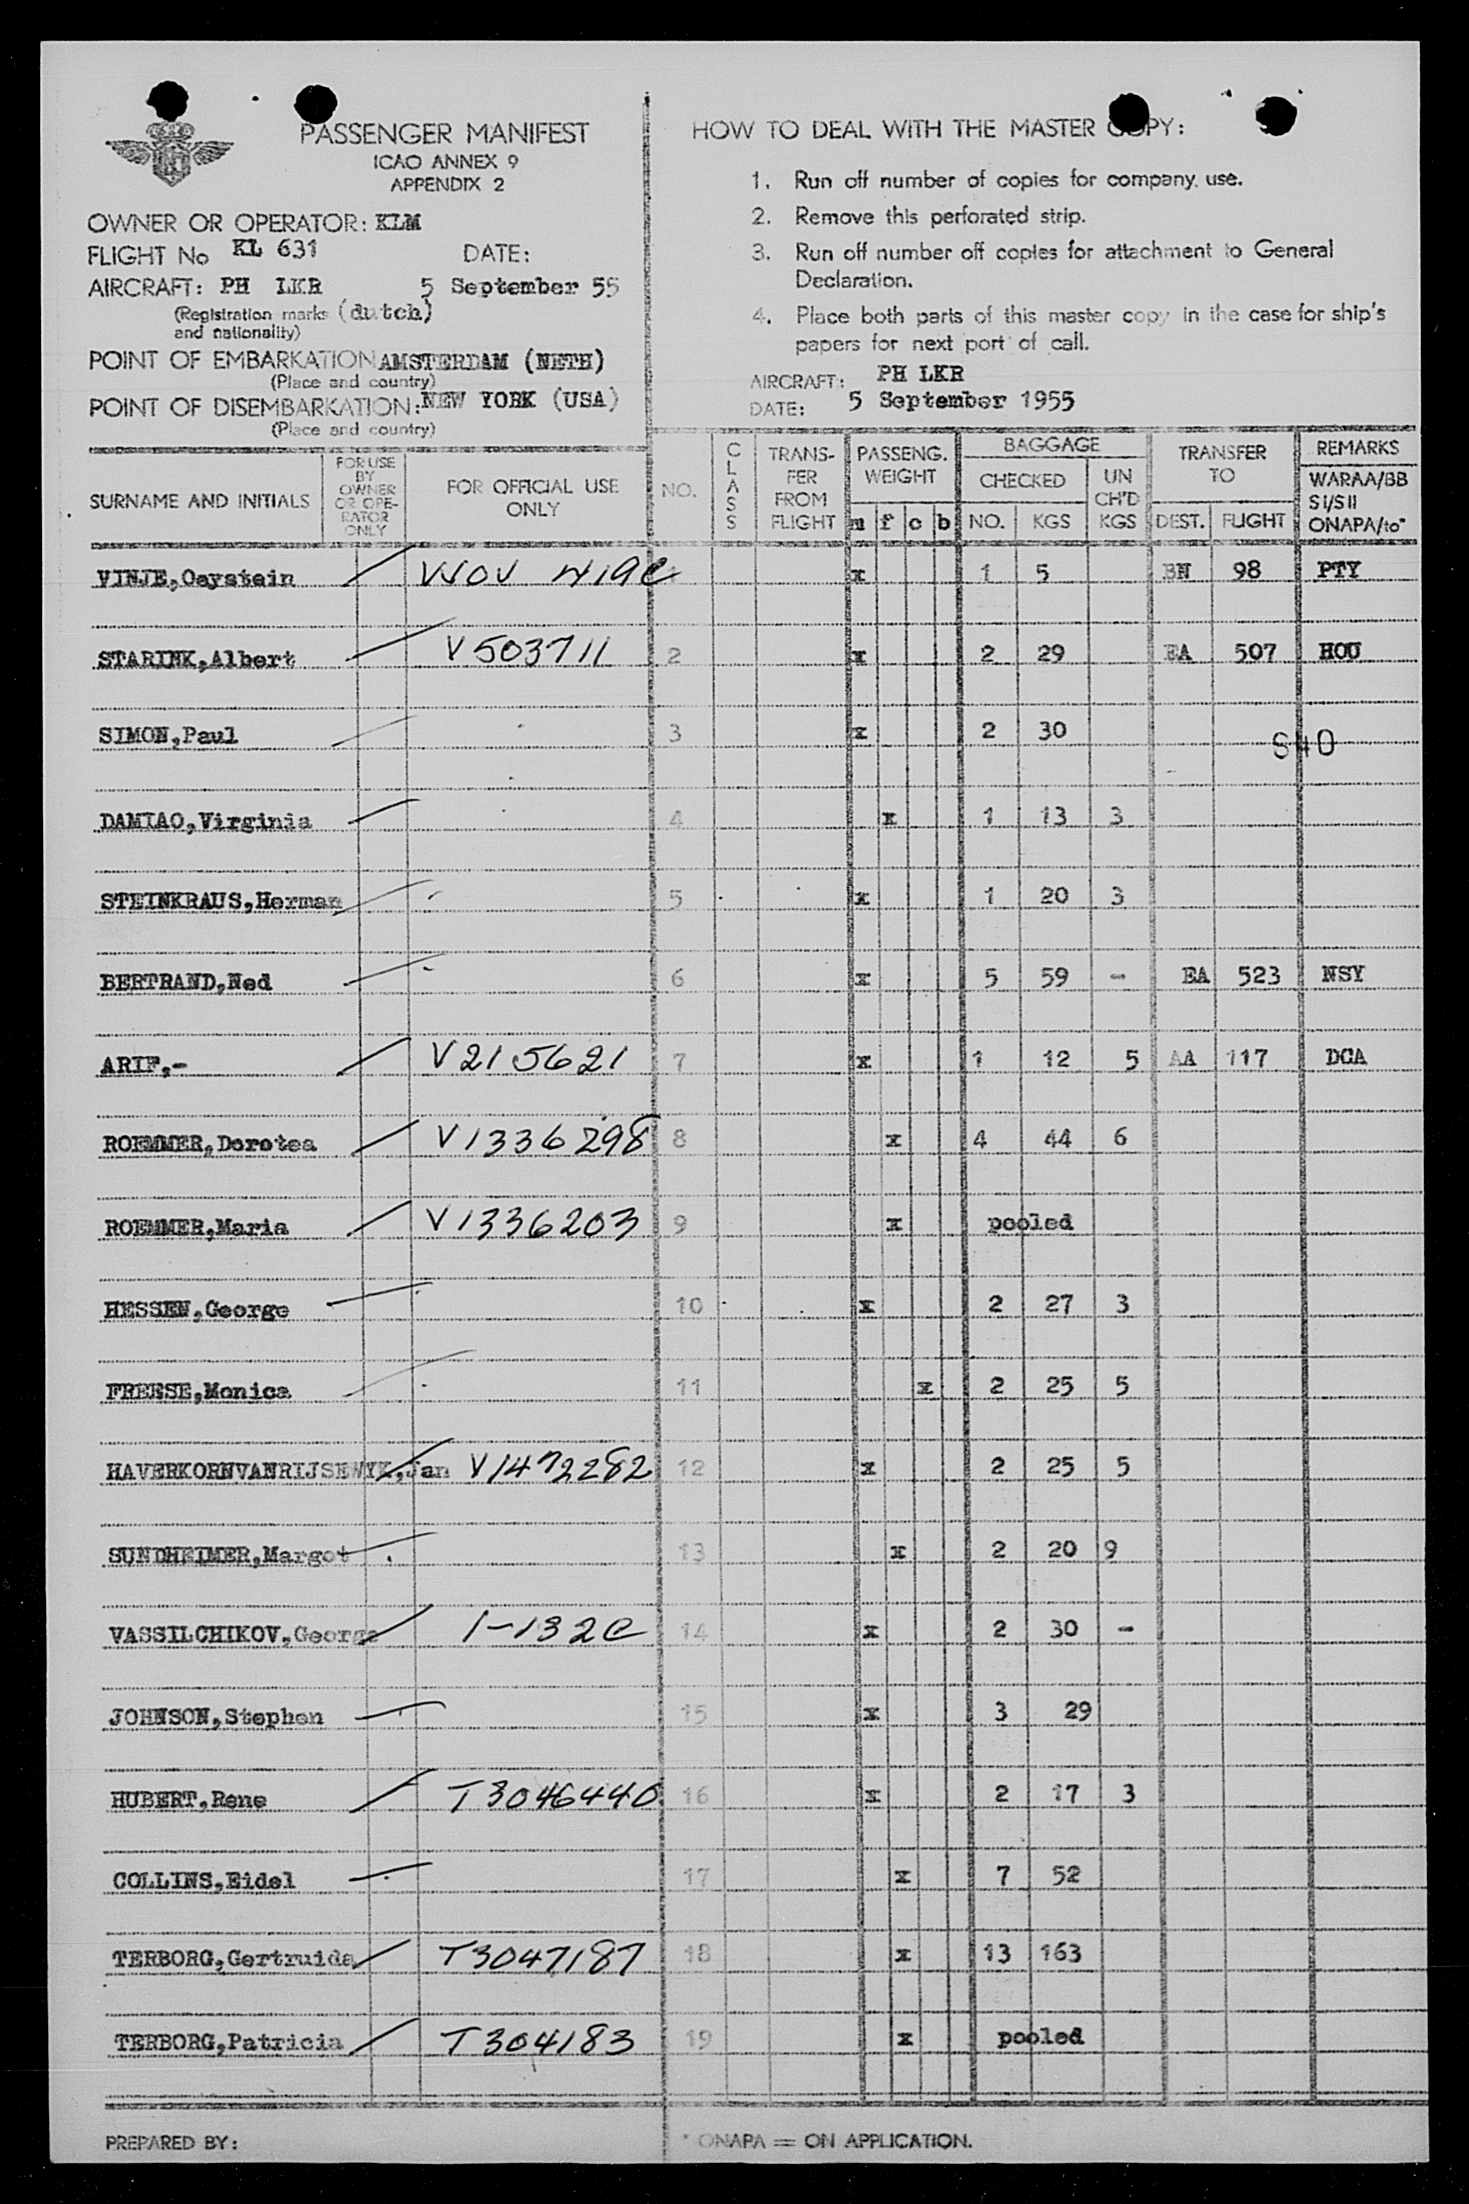 PASSENGER MANIFEST
ICAO ANNEX 9
APPENDIX 2
OWNER OR OPERATOR: KLM
FLIGHT No KL 631 DATE:
AIRCRAFT: PH LKR 5 September 55
(Registration marks (dutch)
and nationality)
POINT OF EMBARKATION AMSTERDAM (NETH)
(Place and country)
POINT OF DISEMBARKATION: NEW YORK (USA)
(Place and country)
HOW TO DEAL WITH THE MASTER COPY:
1. Run off number of copies for company. use.
2. Remove this perforated strip.
3. Run off number off copies for attachment to General
Declaration.
4. Place both parts of this master copy in the case for ship's
papers for next port of call.
AIRCRAFT: PH LKR
DATE: 5 September 1955
SURNAME AND INITIALS
FOR USE
BY
OWNER
OR OPE-
RATOR
ONLY
FOR OFFICIAL USE
ONLY
NO.
CLASS
TRANS-
FER
FROM
FLIGHT
PASSENG.
WEIGHT
m f c b
BAGGAGE
CHECKED
NO. KGS
UN
CH'D
KGS
TRANSFER
TO
DEST. FLIGHT
REMARKS
WARAA/BB
SI/SII
ONAPA/to*
VINJE,Oaystein x 1 5 BN 98 PTY
STARINK,Albert V503711 2 x 2 29 EA 507 HOU
SIMON,Paul 3 x 2 30 S40
DAMIAO,Virginia 4 x 1 13 3
STEINKRAUS,Herman 5 x 1 20 3
BERTRAND,Ned 6 x 5 59 - EA 523 NSY
ARIF,- V215621 7 x 1 12 5 AA 117 DCA
ROEMMER,Dorotea V1336298 8 x 4 44 6
ROEMMER,Maria V1336203 9 x pooled
HESSEN,George 10 x 2 27 3
FREESE,Monica 11 x 2 25 5
HAVERKORNVANRIJSEWYK,Jan V1472282 12 x 2 25 5
SUNDHEIMER,Margot 13 x 2 20 9
VASSILCHIKOV,George 1-132C 14 x 2 30 -
JOHNSON,Stephen 15 x 3 29
HUBERT,Rene T3046440 16 x 2 17 3
COLLINS,Eidel 17 x 7 52
TERBORG,Gertruida T3047187 18 x 13 163
TERBORG,Patricia T304183 19 x pooled
PREPARED BY:
* ONAPA = ON APPLICATION.